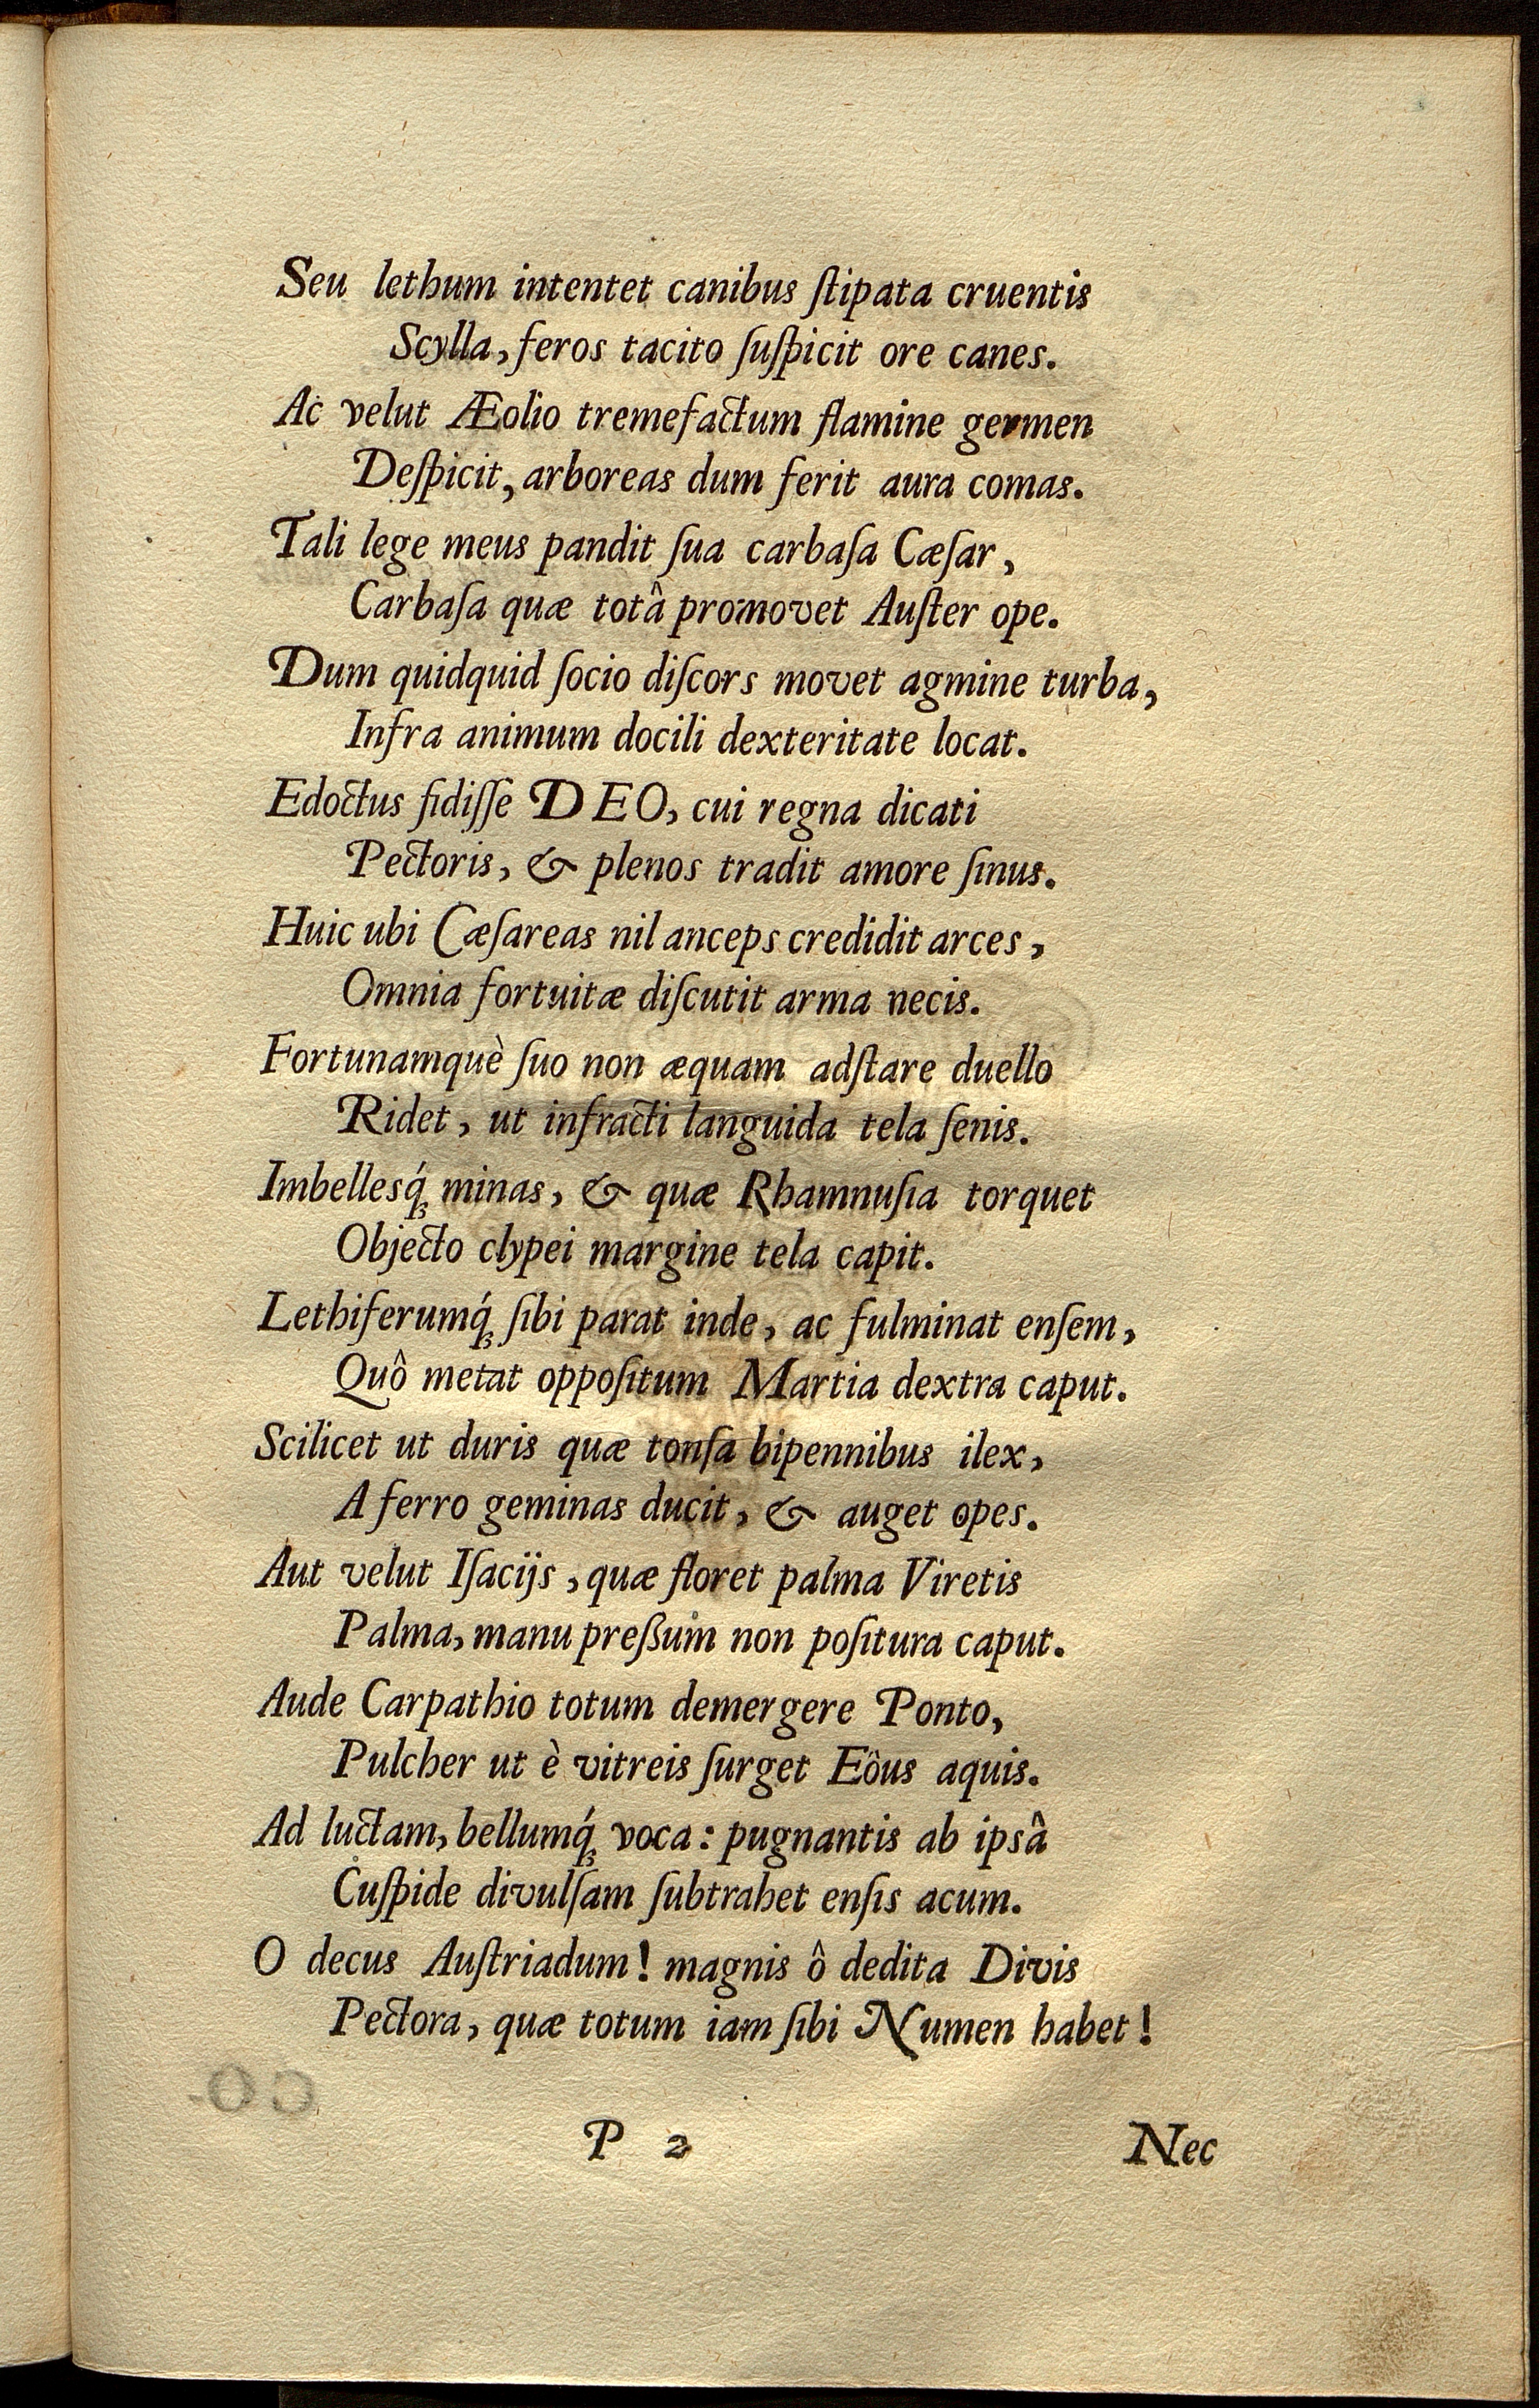 Seu lethum intentet canibus ſtipata cruentis
Scylla, feros tacito ſuſpicit ore canes.
Ac velut Æolio tremefactum flamine germen
Deſpicit, arboreas dum ferit aura comas.
Tali lege meus pandit ſua carbaſa Cæſar,
Carbaſa quæ totâ promovet Auſter ope.
Dum quidquid ſocio diſcors movet agmine turba,
Infra animum docili dexteritate locat.
Edoctus fidiſſe DEO, cui regna dicati
Pectoris, & plenos tradit amore ſinus.
Huic ubi Cæſareas nil anceps credidit arces,
Omnia fortuitæ diſcutit arma necis.
Fortunamquè ſuo non æquam adſtare duello
Ridet, ut infracti languida tela ſenis.
Imbellesq́ꝫ minas, & quæ Rhamnuſia torquet
Objecto clypei margine tela capit.
Lethiferumq́ꝫ ſibi parat inde, ac fulminat enſem,
Quô metat oppoſitum Martia dextra caput.
Scilicet ut duris quæ tonſa bipennibus ilex,
A ferro geminas ducit, & auget opes.
Aut velut Iſacijs, quæ floret palma Viretis
Palma, manu preßum non poſitura caput.
Aude Carpathio totum demergere Ponto,
Pulcher ut è vitreis ſurget Eôus aquis.
Ad luctam, bellumq́ꝫ voca: pugnantis ab ipsâ
Cuſpide divulſam ſubtrahet enſis acum.
O decus Auſtriadum! magnis ô dedita Divis
Pectora, quæ totum iam ſibi Numen habet!
P 2
Nec